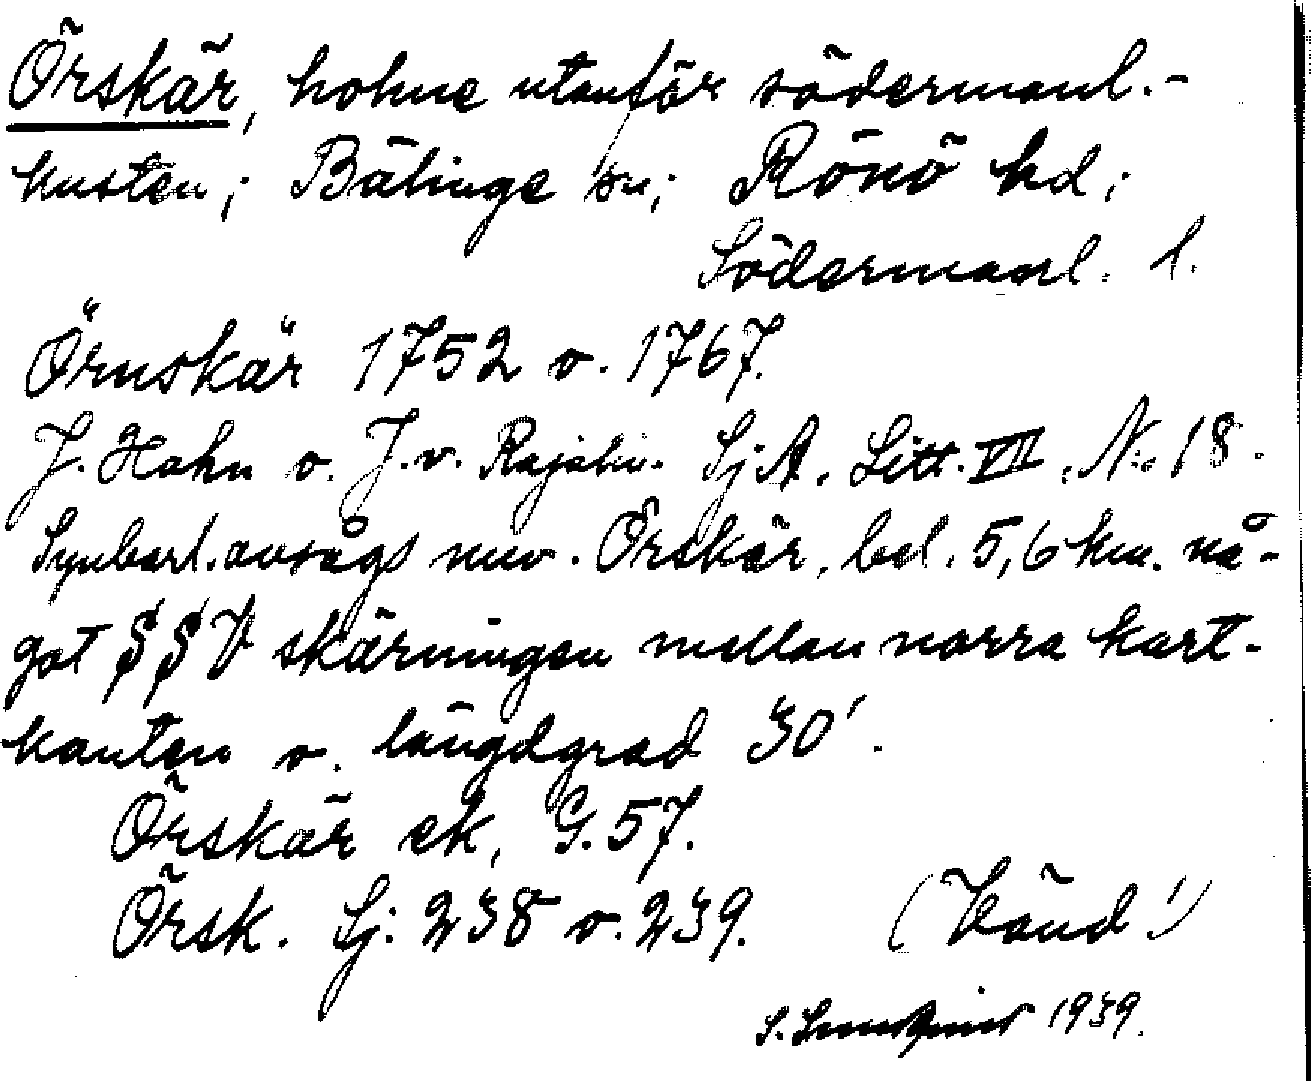 Örskär, holme utanför södermanl.-
kusten; Bälinge sn; Rönö hd;
Södermanl. l.
Örnskär 1752 o. 1767.
J. Hahn o. J. v. Rajalin. Sj A. Litt. VII. No 18.
Synbarl. avsågs nuv. Örskär, bel. 5,6 km. nå-
got S S V skärningen mellan norra kart-
kanten o. längdgrad 30'.
Örskär ek, G. 57.
Örsk. Sj: 238 o. 239. (Vänd!)
S. 1939.